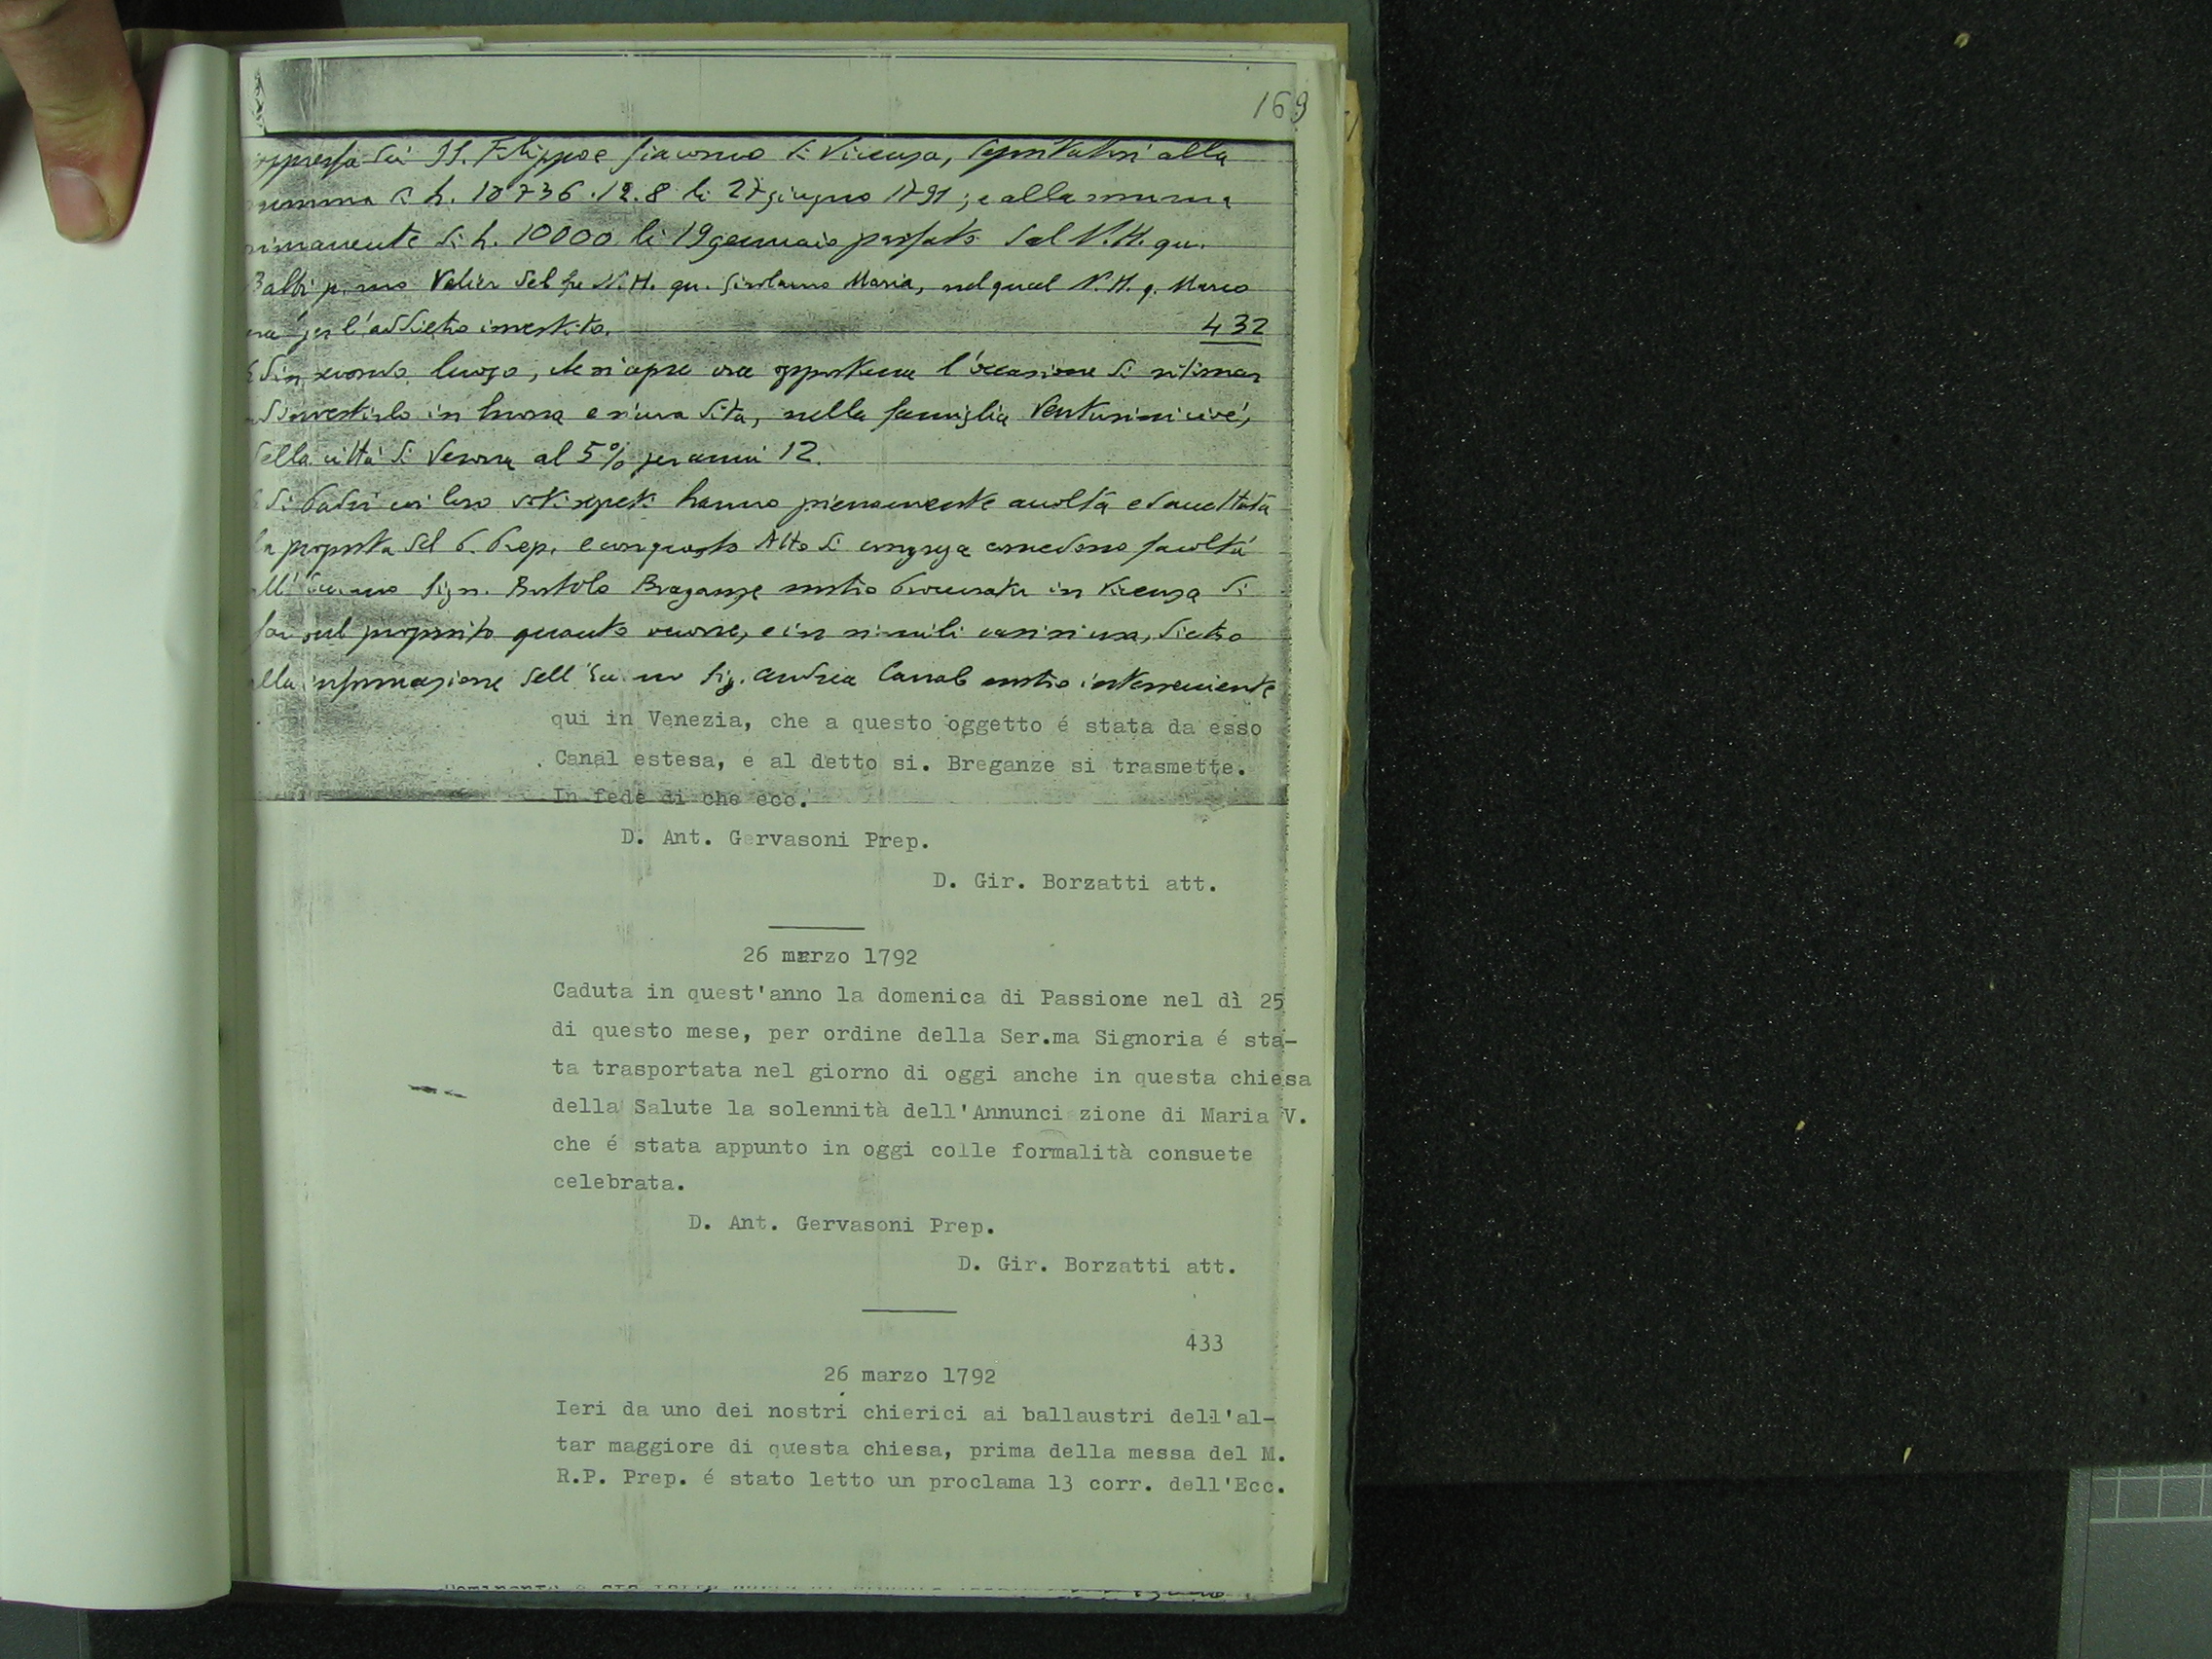 169
SS. Filippo e Giacomo di Vicenza, depositatosi alla
summa di L. 10736.12.8 li 27 giugno 1791; e alla summa
rimanente di L. 10000 li 19 gennaio passato dal N.H. qu.
Balbi Valier del fu N.H. qu. Girolamo Maria, nel qual N.H. q. Marco
era per l'addietro investito. 432
Ed in secondo luogo, che si apre ora opportuna l'occasione di
investirlo in buona e sicura dita, nella famiglia Venturini
della città di Verona al 5% per anni 12.
di Padri coi loro voti segreti hanno pienamente accolta ed accettata
la proposta del P. Prep. e con questo Atto di congrega concedono facoltà
Sign. Bortolo Breganze nostro Procurator in Vicenza di
far sul proposito quanto occorre, e in simili casi si usa, dietro
alla informazione dell' Sig. Andrea Canal nostro interveniente
qui in Venezia, che a questo oggetto é stata da esso
Canal estesa, e al detto si. Breganze si trasmette.
In fede di che ecc.
D. Ant. Gervasoni Prep.
D. Gir. Borzatti att.
26 marzo 1792
Caduta in quest'anno la domenica di Passione nel dì 25
di questo mese, per ordine della Ser.ma Signoria é sta-
ta trasportata nel giorno di oggi anche in questa chiesa
della Salute la solennità dell'Annunci zione di Maria V.
che é stata appunto in oggi colle formalità consuete
celebrata.
D. Ant. Gervasoni Prep.
D. Gir. Borzatti att.
433
26 marzo 1792
Ieri da uno dei nostri chierici ai ballaustri dell'al-
tar maggiore di questa chiesa, prima della messa del M.
R.P. Prep. é stato letto un proclama 13 corr. dell'Ecc.